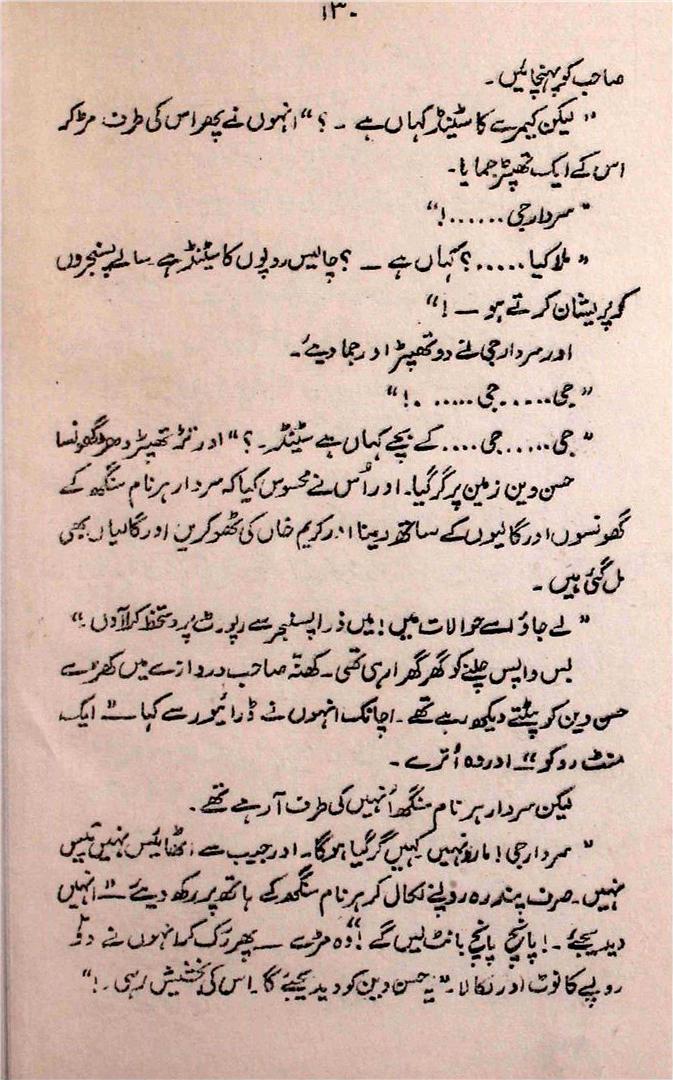 ۱۳۰
صاحب کو پہنچائیں۔
” لیکن کیمرے کا سٹینڈ کہاں ہے ۔ ؟ “ انہوں نے پھر اس کی طرف مڑ کر
اس کے ایک تھپڑ جمایا۔
” سردار جی ......! “
” ملا کیا .....؟ کہاں ہے ــ ؟ چالیس روپوں کا سٹینڈ ہے سالے پسنجروں
کو پریشان کرتے ہو ــ ! “
اور سردار جی نے دو تھپڑ اور جما دیئے۔
” جی ..... جی ..... .! “
” جی ..... جی .... کے بچے کہاں ہے سٹینڈ۔ ؟ “ اور تڑ تھپڑ دھڑ گھونسا
حسن دین زمین پر گر گیا۔ اور اُس نے محسوس کیا کہ سردار ہرنام سنگھ کے
گھونسوں اور گالیوں کے ساتھ دینا اور کریم خاں کی ٹھوکریں اور گالیاں بھی
مل گئی ہیں ۔
” لے جاؤ اسے حوالات میں! میں ذرا پسنجر سے رپورٹ پر دستخط کرا آؤں۔ “
بس واپس چلنے کو گھر گھرا رہی تھی۔ کھنّہ صاحب دروازے میں کھڑے
حسن دین کو پٹتے دیکھ رہے تھے ۔ اچانک انہوں نے ڈرائیور سے کہا ــ ” ایک
منٹ روکو “ ــ اور وہ اُترے ۔
لیکن سردار ہرنام سنگھ اُنہیں کی طرف آ رہے تھے ۔
” سردار جی! مارو نہیں کہیں گر گیا ہوگا۔ اور جیب سے اٹھائیس نہیں تیس
نہیں۔ صرف پندرہ روپئے نکال کر ہرنام سنگھ کے ہاتھ پر رکھ دیئے ــ ” انہیں
دیدیجئے ۔! پانچ پانچ بانٹ لیں گے! “ وہ مڑے ــ پھر رُک کر انہوں نے دو
روپے کا نوٹ اور نکالا۔ ” یہ حسن دین کو دیدیجئے گا۔ اس کی بخشیش رہی ۔! “